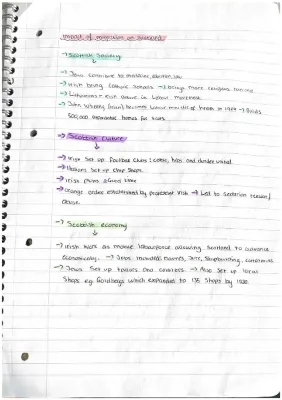 Impact of migration on Scotland
→ Scottish Society
→ Jews contribute to medicine, education, law
→ Irish bring Catholic schools → brings more religious tension
→ Lithuanians + Irish active in labour movement
→ John Wheatley (Irish) becomes labour minister of health in 1924 → Builds
500,000 affordable homes for Scots.
→ Scottish Culture
→ Irish set up football clubs: Celtic, hibs and dundee united.
→ Italians set up chip shops.
→ Irish pubs
→ Orange order established by protestant Irish → Led to sectarian tension/
→ Scottish economy
→ Irish work as labourforce allowing Scotland to advance
economically. → Jobs included: Navvies, Jute, Shipbuilding,
→ Jews set up tailors and → Also set up local
shops e.g. Goldbergs which expanded to 135 shops by 1930.